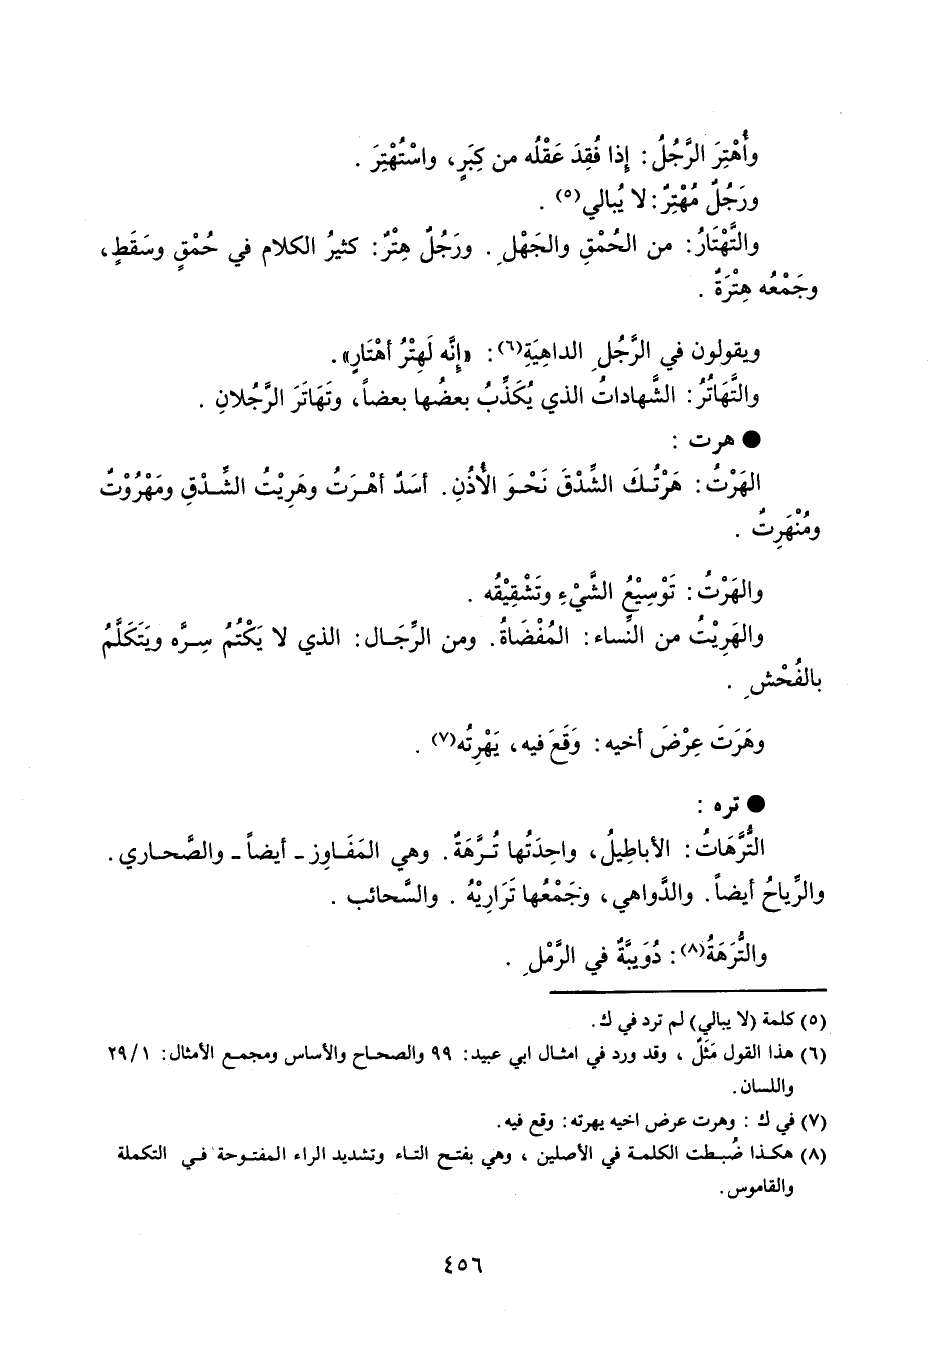 وأُهْتِرَ الرَّجُلُ: إذا فُقِدَ عَقْلُه من كِبَرٍ، واسْتُهْتِرَ .
ورَجُلٌ مُهْتِرٌ: لا يُبالي(٥) .
والتَّهْتَارُ: من الحُمْقِ والجَهْلِ . ورَجُلٌ هِتْرٌ: كثيرُ الكلام في حُمْقٍ وسَقَطٍ،
وجَمْعُه هِتْرَةٌ .
ويقولون في الرَّجُلِ الداهِيَةِ(٦): «إنَّه لَهِتْرُ أهْتَارٍ».
والتَّهَاتُرُ: الشَّهاداتُ الذي يُكَذِّبُ بعضُها بعضاً، وتَهَاتَرَ الرَّجُلانِ .
● هرت :
الهَرْتُ: هَرْتُـكَ الشِّدْقَ نَحْـوَ الْأُذُنِ. أسَدٌ أهْـرَتُ وهَرِيْتُ الشِّـدْقِ ومَهْرُوْتٌ
ومُنْهَرِتٌ .
والهَرْتُ: تَوْسِيْعُ الشَّيْءِ وتَشْقِيْقُه .
والهَرِيْتُ من النِّساء: المُفْضَاةُ. ومن الرِّجَـال: الذي لا يَكْتُمُ سِـرَّه ويَتَكَلَّمُ
بالفُحْشِ .
وهَرَتَ عِرْضَ أخيه: وَقَعَ فيه، يَهْرِتُه(٧) .
● تره :
التُّرَّهَاتُ: الأباطِيلُ، واحِدَتُها تُـرَّهَةٌ. وهي المَفَـاوِز ـ أيضاً ـ والصَّحـاري.
والرِّياحُ أيضاً. والدَّواهي، وجَمْعُها تَرَارِيْهُ . والسَّحائب .
والتُّرَهَةُ(٨): دُوَيبَّةٌ في الرَّمْلِ .
(٥) كلمة (لا يبالي) لم ترد في ك.
(٦) هذا القول مَثَلٌ ، وقد ورد في امثـال ابي عبيد: ٩٩ والصحـاح والأساس ومجمـع الأمثال: ٢٩/١
واللسان.
(٧) في ك : وهرت عرض اخيه يهرته: وقع فيه.
(٨) هكـذا ضُبـطت الكلمـة في الأصلين ، وهي بفتـح التـاء وتشديد الراء المفتـوحة فـي التكملة
والقاموس.
٤٥٦